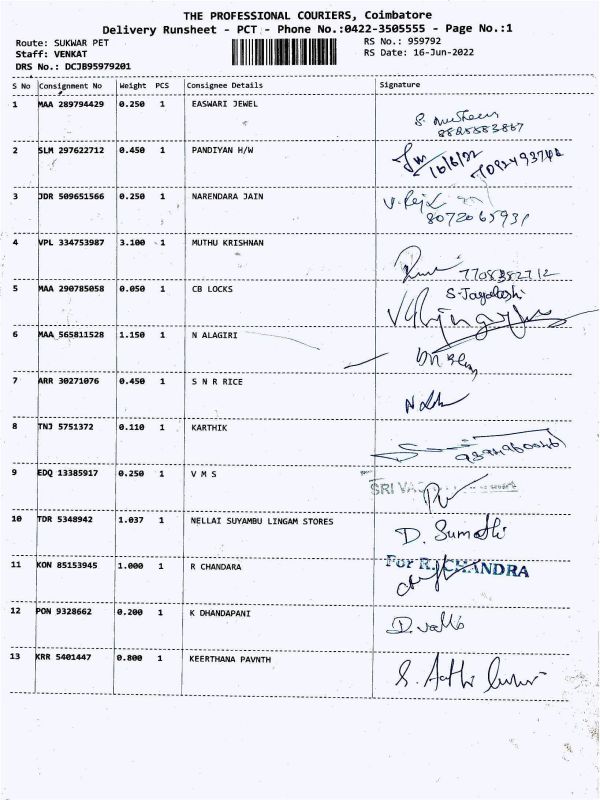 THE PROFESSIONAL COURIERS, Coimbatore
Delivery Runsheet - PCT - Phone No.:0422-3505555 - Page No.:1
Route: SUKWAR PET RS No.: 959792
Staff: VENKAT RS Date: 16-Jun-2022
DRS No.: DCJB95979201
S No Consignment No Weight PCS Consignee Details Signature
1 MAA 289794429 0.250 1 EASWARI JEWEL
2 SLM 297622712 0.450 1 PANDIYAN H/W
16/6/22
3 JDR 509651566 0.250 1 NARENDARA JAIN
8072065931
4 VPL 334753987 3.100 1 MUTHU KRISHNAN
7708382712
5 MAA 290785058 0.050 1 CB LOCKS
6 MAA 565811528 1.150 1 N ALAGIRI
7 ARR 30271076 0.450 1 S N R RICE
8 TNJ 5751372 0.110 1 KARTHIK
9 EDQ 13385917 0.250 1 V M S
SRI
10 TDR 5348942 1.037 1 NELLAI SUYAMBU LINGAM STORES
D. Sumathi
11 KON 85153945 1.000 1 R CHANDARA
For R. CHANDRA
12 PON 9328662 0.200 1 K DHANDAPANI
13 KRR 5401447 0.800 1 KEERTHANA PAVNTH